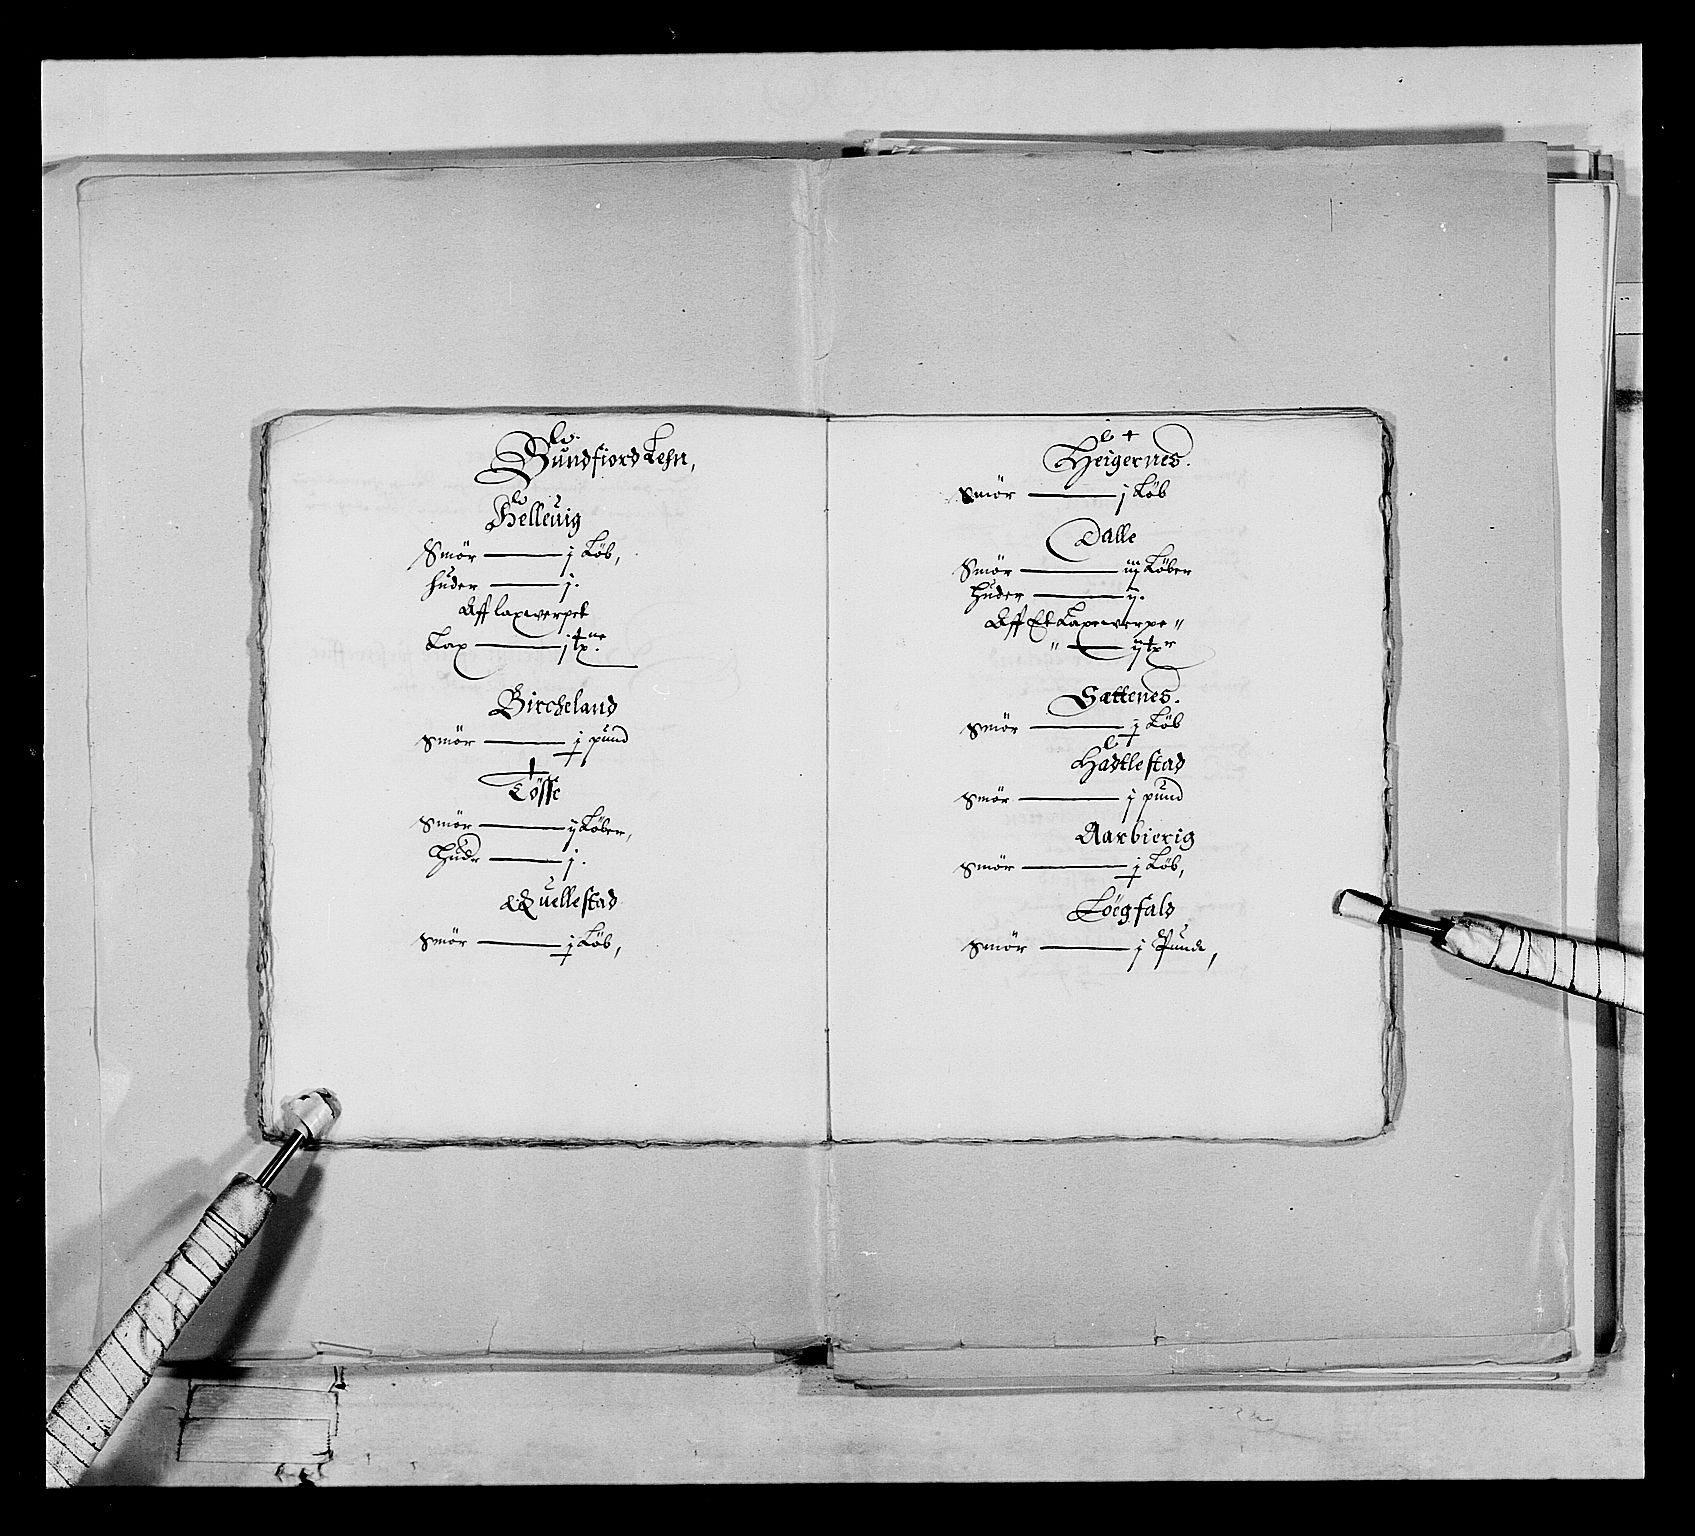 Sundfiord Lehn,
Helleuig
Smör — j Löb,
huder — j.
Aff laxewerpet
Lax — j tne
Bircheland
Smör — j pund
Tösse
Smör — ij Löber,
Hudr — j.
Quellestad
Smör — j Löb,
Heigernes.
Smör — j Löb
Dalle
Smör — iij Löber
Huder — ij.
Aff Et Laxewerpe "
" — ij tr
Sættenes.
Smör — j Löb
Hadtlestad
Smör — j pund
Aarbierig
Smör — j Löb,
Löegfald
Smör — j Punde,